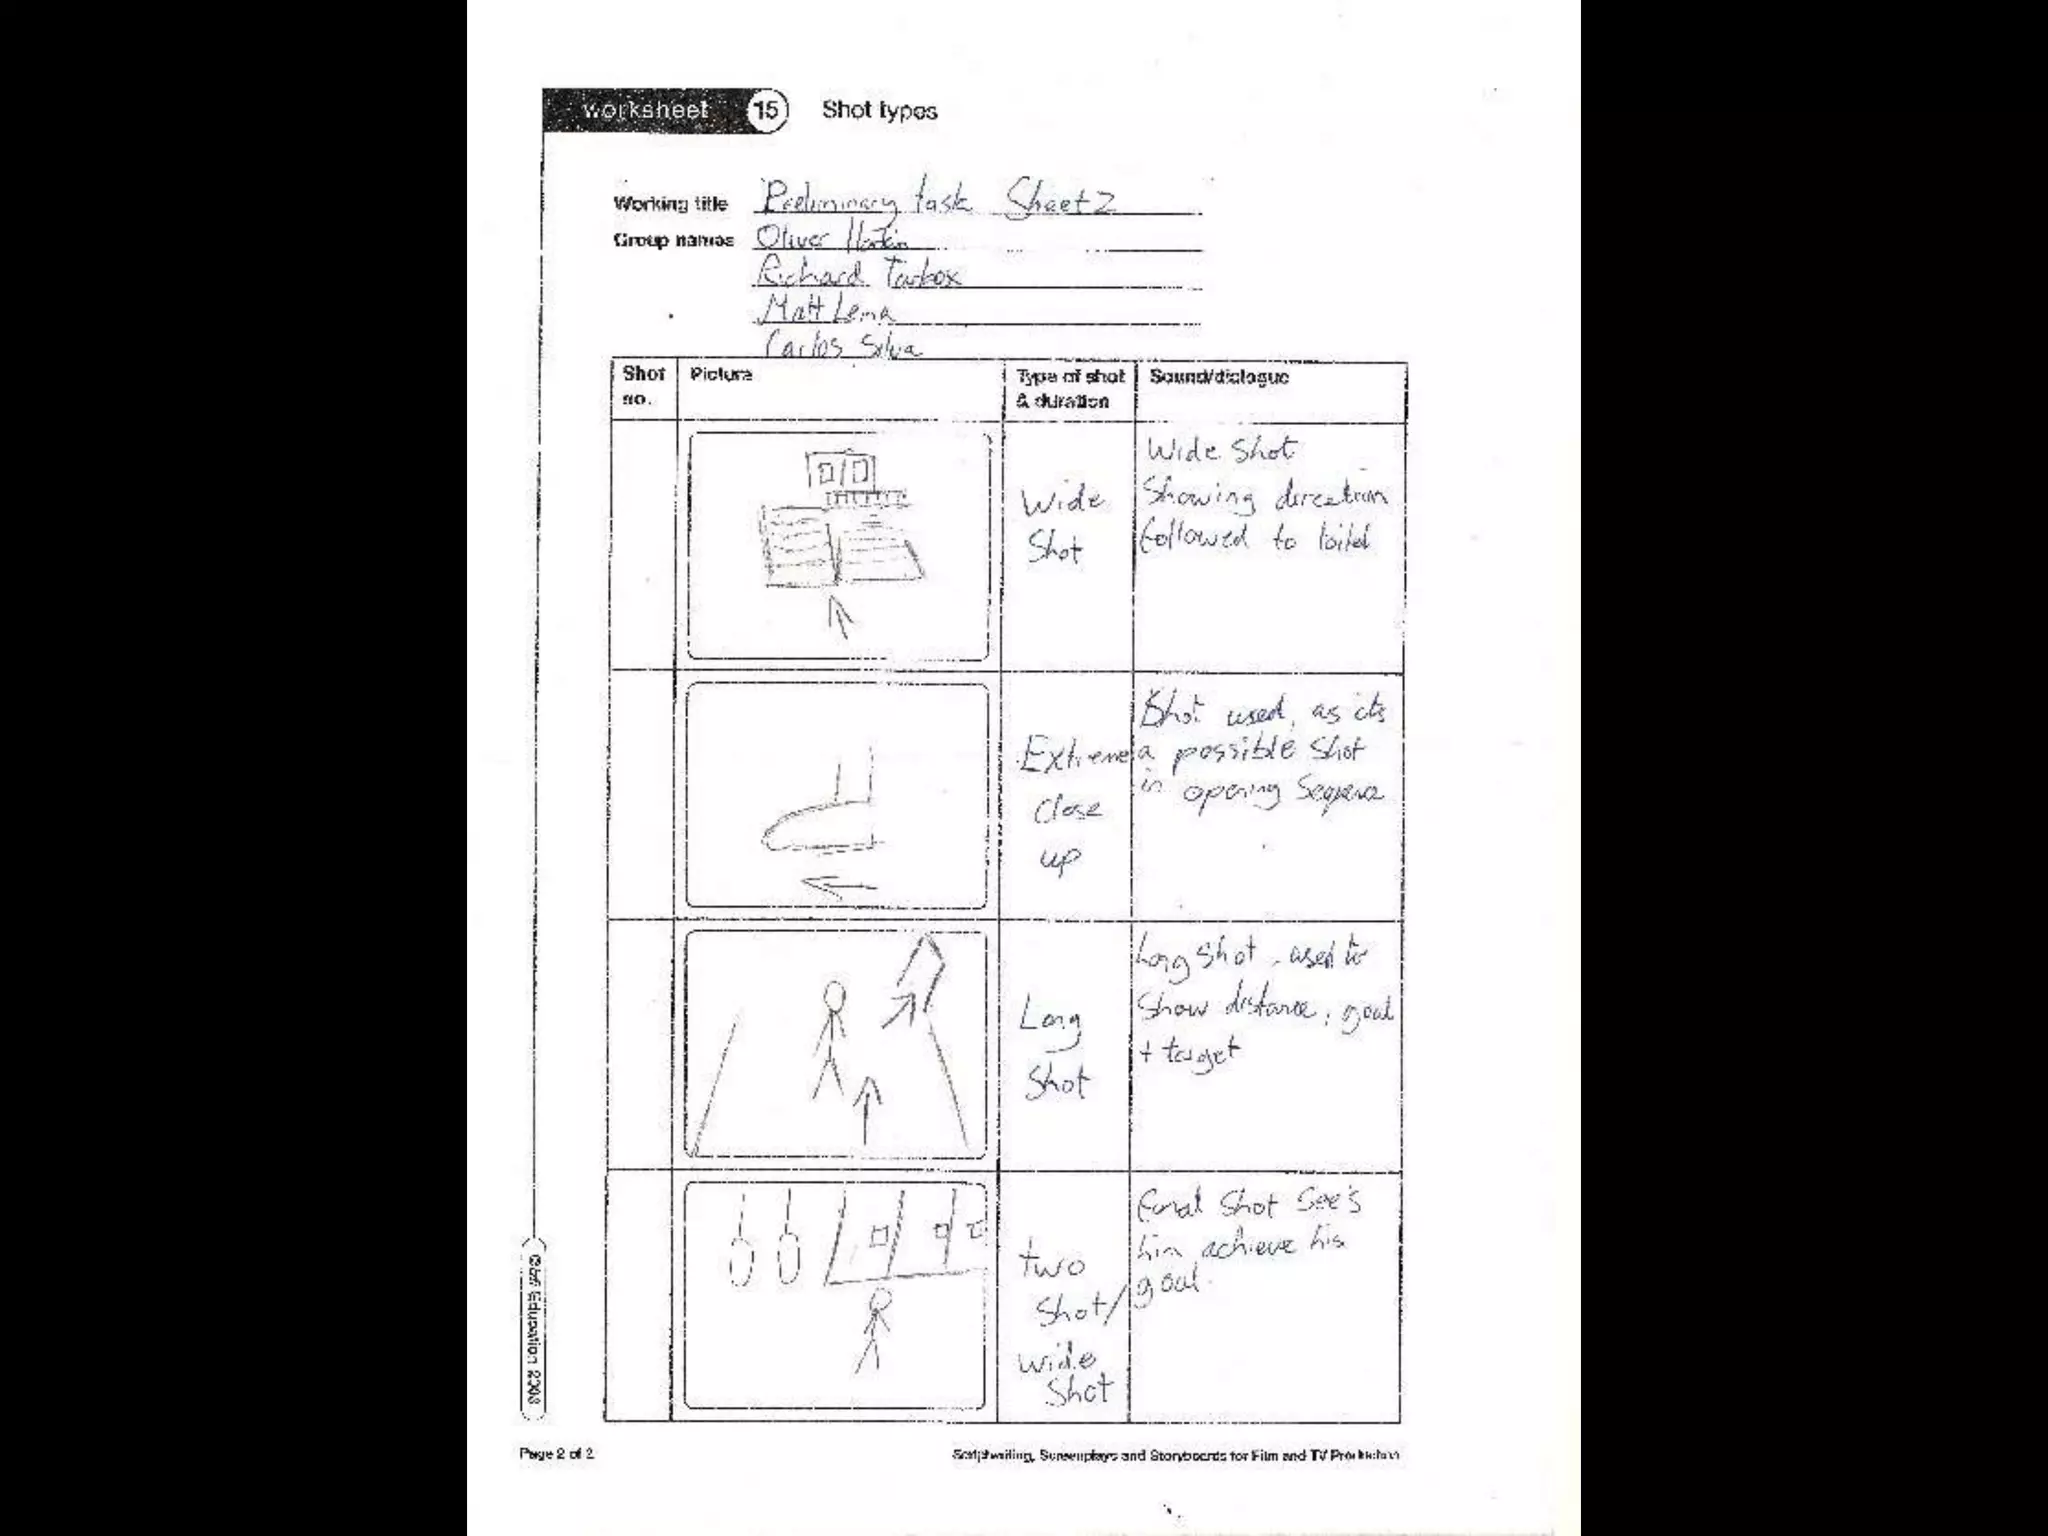 worksheet 15 Shot types
Working title Preliminary task Sheet 2
Group names Oliver
Richard Tarbox
Matt Lema
Carlos Silva
Shot no.
Picture
Type of shot & duration
Sound/dialogue
Wide
Shot
Wide Shot
Showing direction
followed to
Extreme
close
up
Shot used, as its
a possible Shot
in opening
Long
Shot
Long Shot - used to
Show distance, goal
+ target
two
Shot/
wide
Shot
Final Shot See's
him achieve his
goal.
Page 2 of 2
Scriptwriting, Screenplays and Storyboards for Film and TV Production
Education